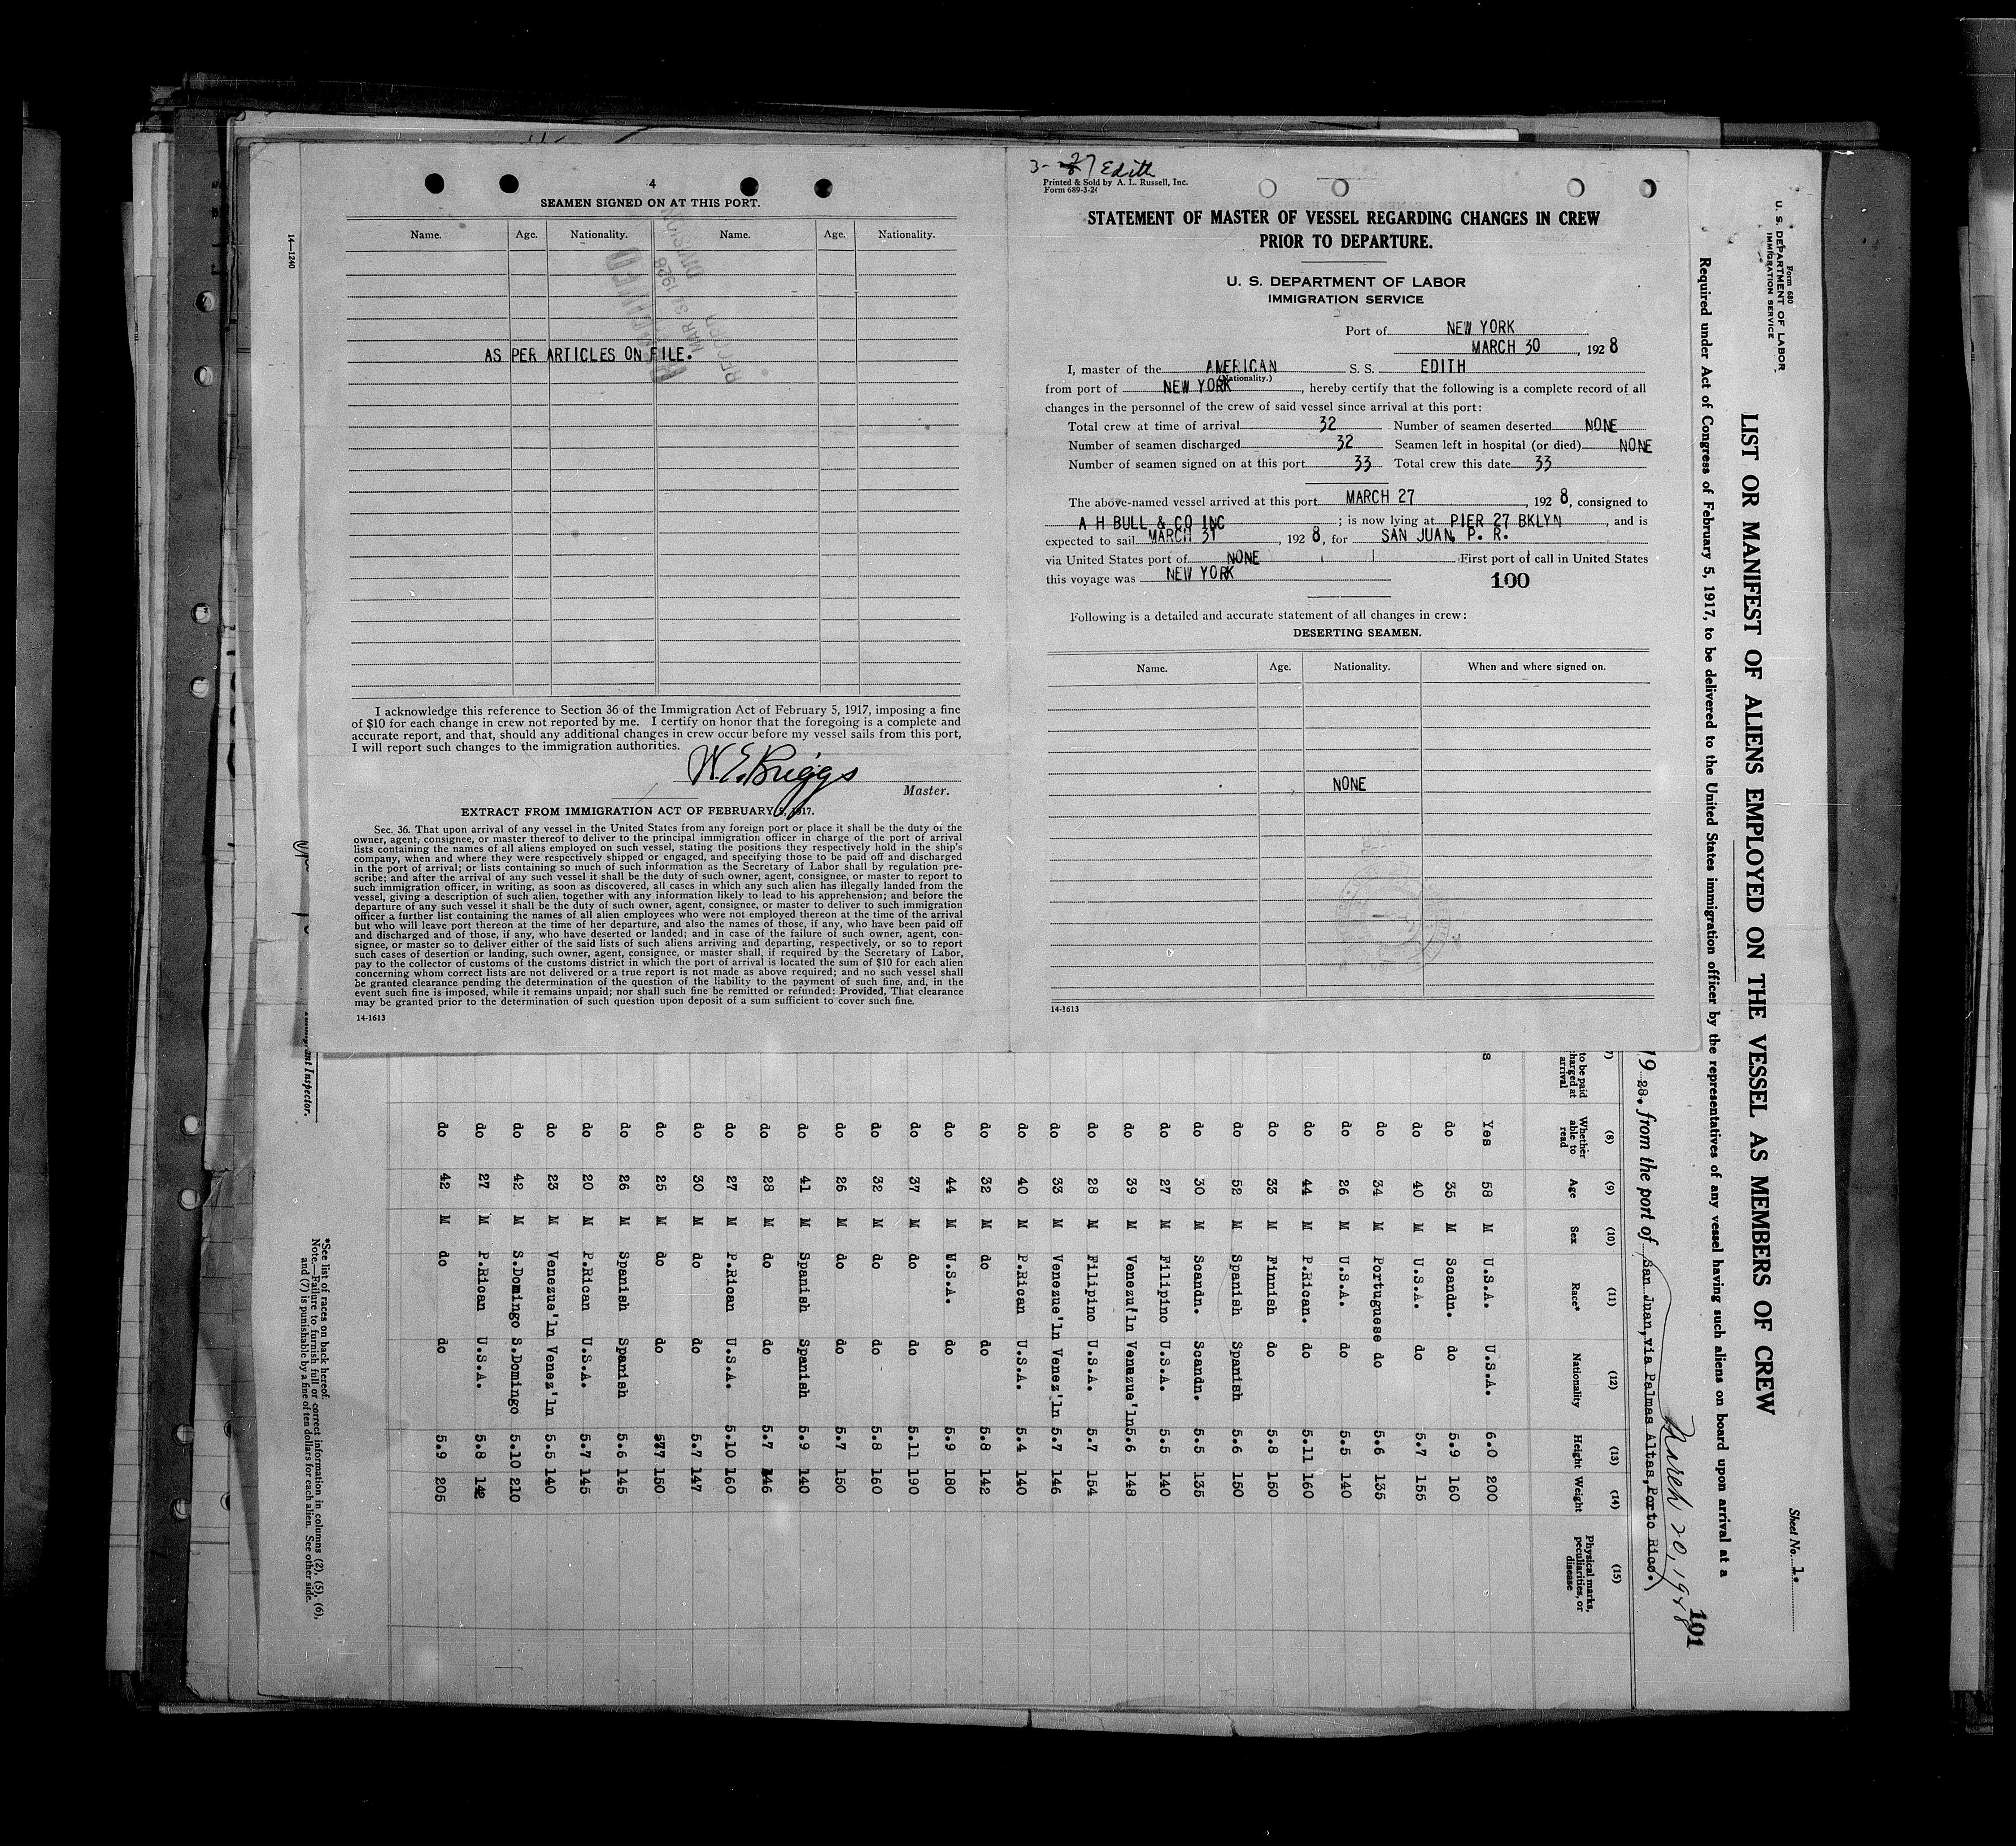 4
SEAMEN SIGNED ON AT THIS PORT.
Name. Age. Nationality. Name. Age. Nationality.
MAR 31 1928
RECORD DIVISION
AS PER ARTICLES ON FILE.
I acknowledge this reference to Section 36 of the Immigration Act of February 5, 1917, imposing a fine
of $10 for each change in crew not reported by me. I certify on honor that the foregoing is a complete and
accurate report, and that, should any additional changes in crew occur before my vessel sails from this port,
I will report such changes to the immigration authorities.
W. E. Briggs
Master.
EXTRACT FROM IMMIGRATION ACT OF FEBRUARY 5, 1917.
Sec. 36. That upon arrival of any vessel in the United States from any foreign port or place it shall be the duty of the
owner, agent, consignee, or master thereof to deliver to the principal immigration officer in charge of the port of arrival
lists containing the names of all aliens employed on such vessel, stating the positions they respectively hold in the ship's
company, when and where they were respectively shipped or engaged, and specifying those to be paid off and discharged
in the port of arrival; or lists containing so much of such information as the Secretary of Labor shall by regulation pre-
scribe; and after the arrival of any such vessel it shall be the duty of such owner, agent, consignee, or master to report to
such immigration officer, in writing, as soon as discovered, all cases in which any such alien has illegally landed from the
vessel, giving a description of such alien, together with any information likely to lead to his apprehension; and before the
departure of any such vessel it shall be the duty of such owner, agent, consignee, or master to deliver to such immigration
officer a further list containing the names of all alien employees who were not employed thereon at the time of the arrival
but who will leave port thereon at the time of her departure, and also the names of those, if any, who have been paid off
and discharged and of those, if any, who have deserted or landed; and in case of the failure of such owner, agent, con-
signee, or master so to deliver either of the said lists of such aliens arriving and departing, respectively, or so to report
such cases of desertion or landing, such owner, agent, consignee, or master shall, if required by the Secretary of Labor,
pay to the collector of customs of the customs district in which the port of arrival is located the sum of $10 for each alien
concerning whom correct lists are not delivered or a true report is not made as above required; and no such vessel shall
be granted clearance pending the determination of the question of the liability to the payment of such fine, and, in the
event such fine is imposed, while it remains unpaid; nor shall such fine be remitted or refunded: Provided, That clearance
may be granted prior to the determination of such question upon deposit of a sum sufficient to cover such fine.
14-1613
14—1240
3-27 Edith
Printed & Sold by A. L. Russell, Inc.
Form 689-3-26
STATEMENT OF MASTER OF VESSEL REGARDING CHANGES IN CREW
PRIOR TO DEPARTURE.
U. S. DEPARTMENT OF LABOR
IMMIGRATION SERVICE
Port of NEW YORK
MARCH 30, 1928
I, master of the AMERICAN S. S. EDITH
(Nationality.)
from port of NEW YORK, hereby certify that the following is a complete record of all
changes in the personnel of the crew of said vessel since arrival at this port:
Total crew at time of arrival 32 Number of seamen deserted NONE
Number of seamen discharged 32 Seamen left in hospital (or died) NONE
Number of seamen signed on at this port 33 Total crew this date 33
The above-named vessel arrived at this port MARCH 27, 1928, consigned to
A H BULL & CO INC; is now lying at PIER 27 BKLYN, and is
expected to sail MARCH 31, 1928, for SAN JUAN, P. R.
via United States port of NONE First port of call in United States
this voyage was NEW YORK
100
Following is a detailed and accurate statement of all changes in crew:
DESERTING SEAMEN.
Name. Age. Nationality. When and where signed on.
NONE
14-1613
Form 680
U. S. DEPARTMENT OF LABOR
IMMIGRATION SERVICE
Sheet No. 1.
LIST OR MANIFEST OF ALIENS EMPLOYED ON THE VESSEL AS MEMBERS OF CREW
Required under Act of Congress of February 5, 1917, to be delivered to the United States immigration officer by the representatives of any vessel having such aliens on board upon arrival at a
March 20, 1928
101
1928, from the port of San Juan, via Palmas Altas, Porto Rico.
(7) (8) (9) (10) (11) (12) (13) (14) (15)
to be paid
charged at
arrival
Whether
able to
read
Age Sex Race* Nationality Height Weight
Physical marks,
peculiarities, or
disease
s Yes 58 M U.S.A. U.S.A. 6.0 200
do 35 M Scandn. do 5.9 160
do 40 M U.S.A. do 5.7 155
do 34 M Portuguese do 5.6 135
do 26 M U.S.A. do 5.5 140
do 44 M P.Rican. do 5.11 160
do 33 M Finnish do 5.8 150
do 52 M Spanish Spanish 5.6 150
do 30 M Scandn. Scandn. 5.5 135
do 27 M Filipino U.S.A. 5.5 140
do 39 M Venezu'ln Venezue'ln 5.6 148
do 28 M Filipino U.S.A. 5.7 154
do 33 M Venezue'ln Venez'ln 5.7 146
do 40 M P.Rican U.S.A. 5.4 140
do 32 M do do 5.8 142
do 44 M U.S.A. do 5.9 180
do 37 M do do 5.11 190
do 32 M do do 5.8 160
do 26 M do do 5.7 150
do 41 M Spanish Spanish 5.9 140
do 28 M do do 5.7 146
do 27 M P.Rican U.S.A. 5.10 160
do 30 M do do 5.7 147
do 25 M do do 577 150
do 26 M Spanish Spanish 5.6 145
do 20 M P.Rican U.S.A. 5.7 145
do 23 M Venezue'ln Venez'ln 5.5 140
do 42 M S.Domingo S.Domingo 5.10 210
do 27 M P.Rican U.S.A. 5.8 142
do 42 M do do 5.9 205
*See list of races on back hereof.
Note.—Failure to furnish full or correct information in columns (2), (5), (6),
and (7) is punishable by a fine of ten dollars for each alien. See other side.
Immigrant Inspector.